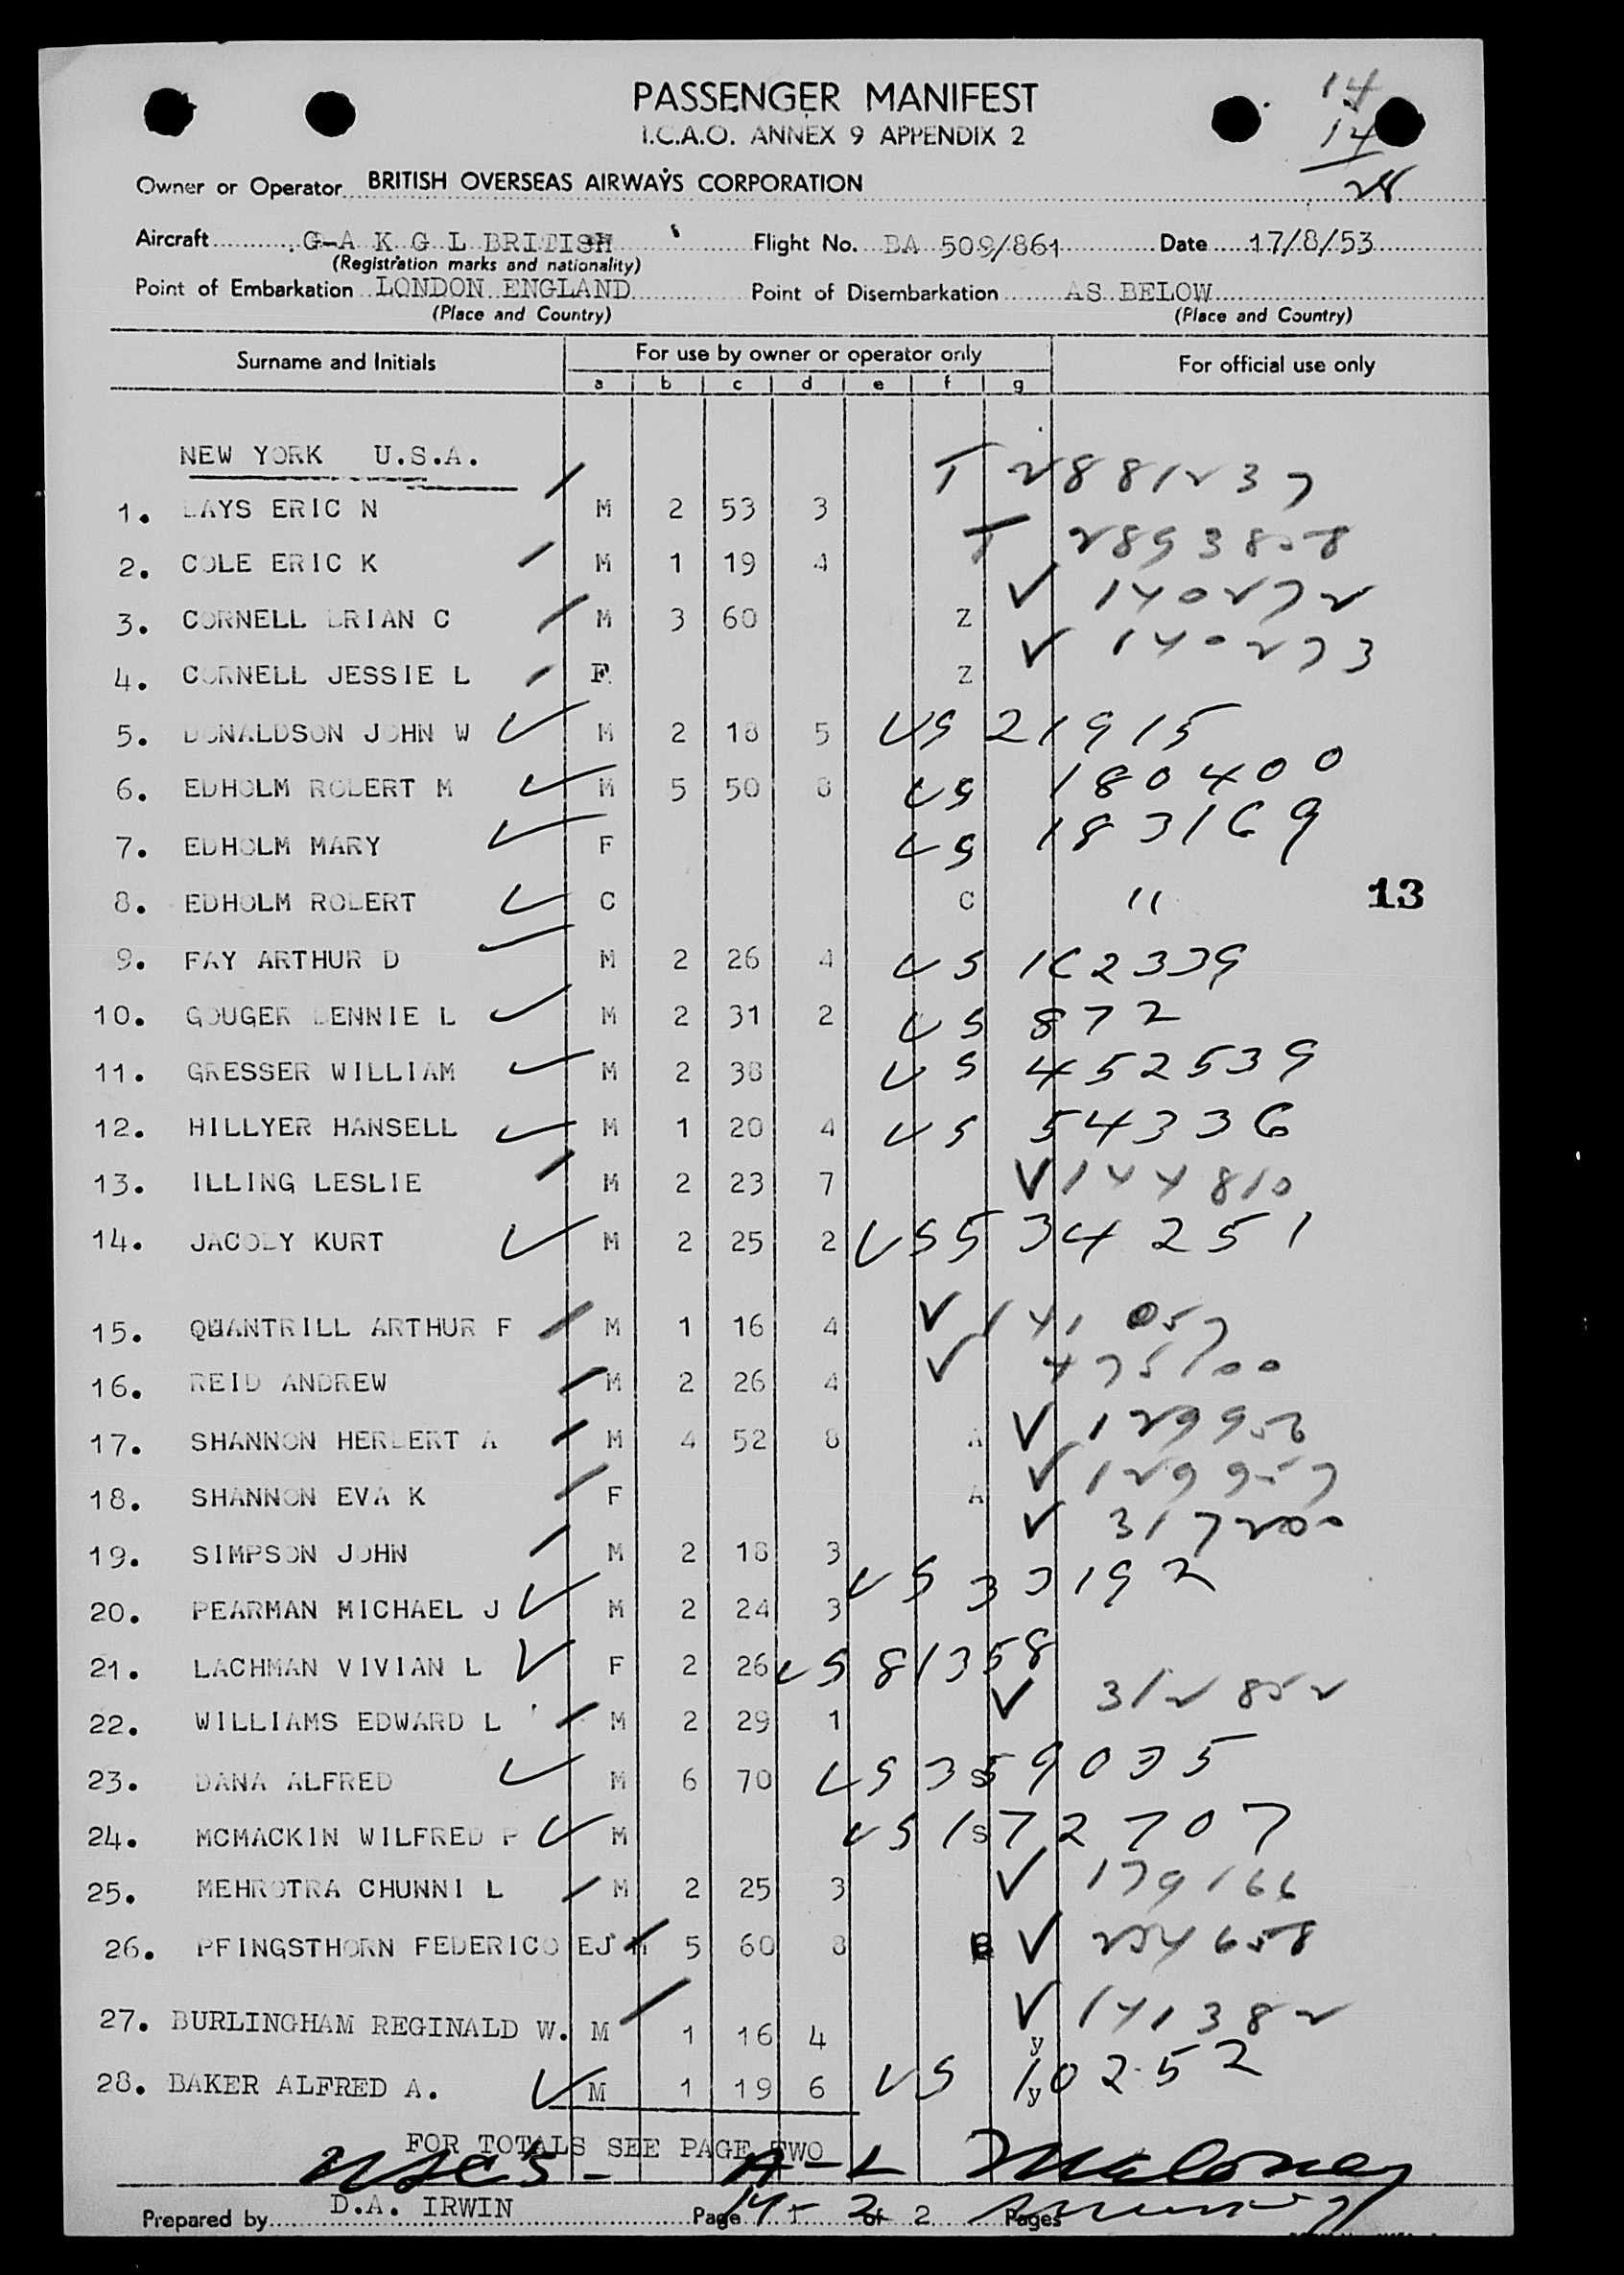 PASSENGER MANIFEST
I.C.A.O. ANNEX 9 APPENDIX 2
14
14
28
Owner or Operator BRITISH OVERSEAS AIRWAYS CORPORATION
Aircraft G-A K G L BRITISH Flight No. BA 509/861 Date 17/8/53
(Registration marks and nationality)
Point of Embarkation LONDON ENGLAND Point of Disembarkation AS BELOW
(Place and Country) (Place and Country)
Surname and Initials For use by owner or operator only For official use only
a b c d e f g
NEW YORK U.S.A.
T 2881237
1. LAYS ERIC N M 2 53 3
T 2893858
2. COLE ERIC K M 1 19 4
V 140272
3. CORNELL BRIAN C M 3 60 Z
V 140273
4. CORNELL JESSIE L F Z
5. DONALDSON JOHN W M 2 18 5 US 21915
6. EDHOLM ROBERT M M 5 50 8 US 180400
7. EDHOLM MARY F US 183169
8. EDHOLM ROBERT C C " 13
9. FAY ARTHUR D M 2 26 4 US 162339
10. GOUGER BENNIE L M 2 31 2 US 872
11. GRESSER WILLIAM M 2 38 US 452539
12. HILLYER HANSELL M 1 20 4 US 54336
13. ILLING LESLIE M 2 23 7 V 144810
14. JACOBY KURT M 2 25 2 US 534251
15. QUANTRILL ARTHUR F M 1 16 4 V 141057
16. REID ANDREW M 2 26 4 V 475100
17. SHANNON HERBERT A M 4 52 8 A V 129956
18. SHANNON EVA K F A V 129957
V 317200
19. SIMPSON JOHN M 2 18 3
20. PEARMAN MICHAEL J M 2 24 3 US 33192
21. LACHMAN VIVIAN L F 2 26 US 81358
22. WILLIAMS EDWARD L M 2 29 1 V 312852
23. DANA ALFRED M 6 70 S US 359035
24. MCMACKIN WILFRED P M S US 172707
25. MEHROTRA CHUNNI L M 2 25 3 V 179166
26. PFINGSTHORN FEDERICO EJ M 5 60 8 B V 254658
27. BURLINGHAM REGINALD W. M 1 16 4 y V 141382
28. BAKER ALFRED A. M 1 19 6 y US 10252
FOR TOTALS SEE PAGE TWO
A-L Maloney
Prepared by D.A. IRWIN Page 1 of 2 Pages
14 - 2